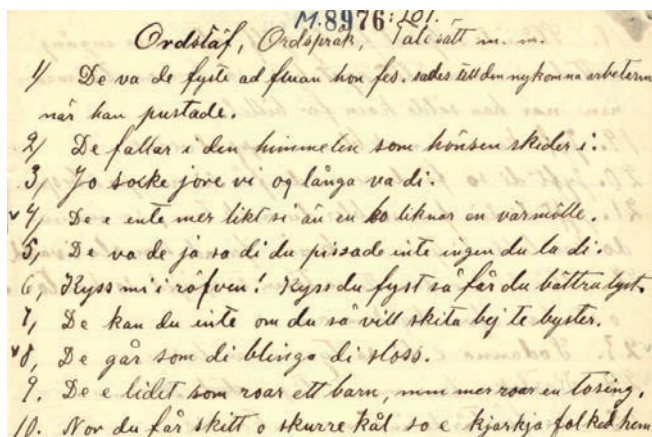 M.8976:101.
Ordstäf, Ordspråk, Talesätt m. m.
1/ De va de fyste ad fluan hon fes. sades till den nykomna arbetaren
när han pustade.
2/ De fallar i den himmelen som hönsen skider i.
3, Jo socke jore vi og långa va di.
v 4, De e ente mer likt si än en ko liknar en värmölle.
5, De va de ja sa di du pissade inte ingen du la di.
6, Kyss mi i röfven! Kyss du fyst så får du bättra lyst.
7, De kan du inte om du så vill skita bej te byster.
v 8, De går som di blinga di sloss.
9. De e lidet som roar ett barn, mer roar en tosing.
10. Nor du får skitt o skurre kål so e kjarkja folked hem